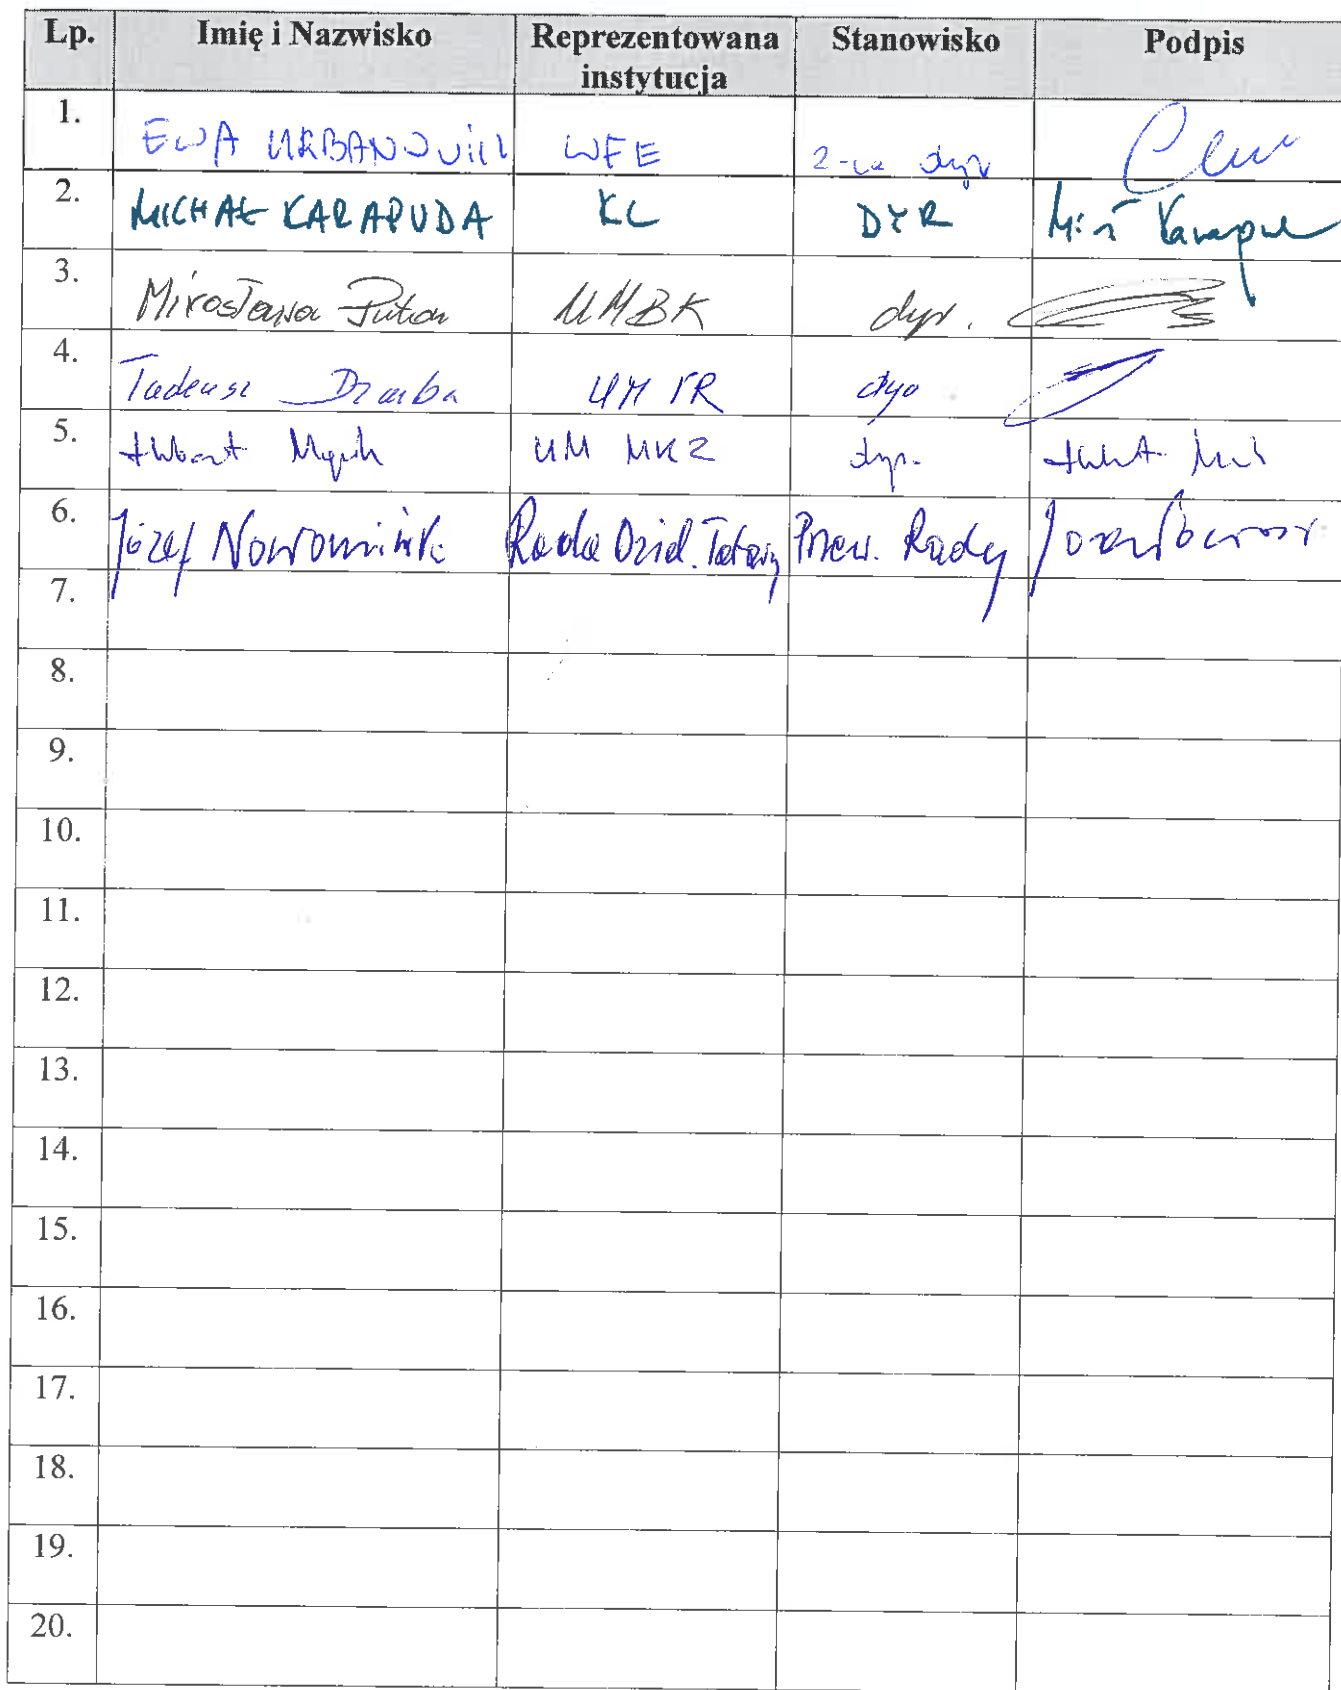 Lp. Imię i Nazwisko Reprezentowana instytucja Stanowisko Podpis
1. EWA URBANOWICZ WFE Z-ca dyr
2. MICHAŁ KARAPUDA KL DYR
3. Mirosława Puton UMBK dyr.
4. Tadeusz Dziuba UM
5. Hubert Mącik UM MKZ dyr.
6. Józef Nowomiński Rada Dzieł. Tatary Przew. Rady
7.
8.
9.
10.
11.
12.
13.
14.
15.
16.
17.
18.
19.
20.